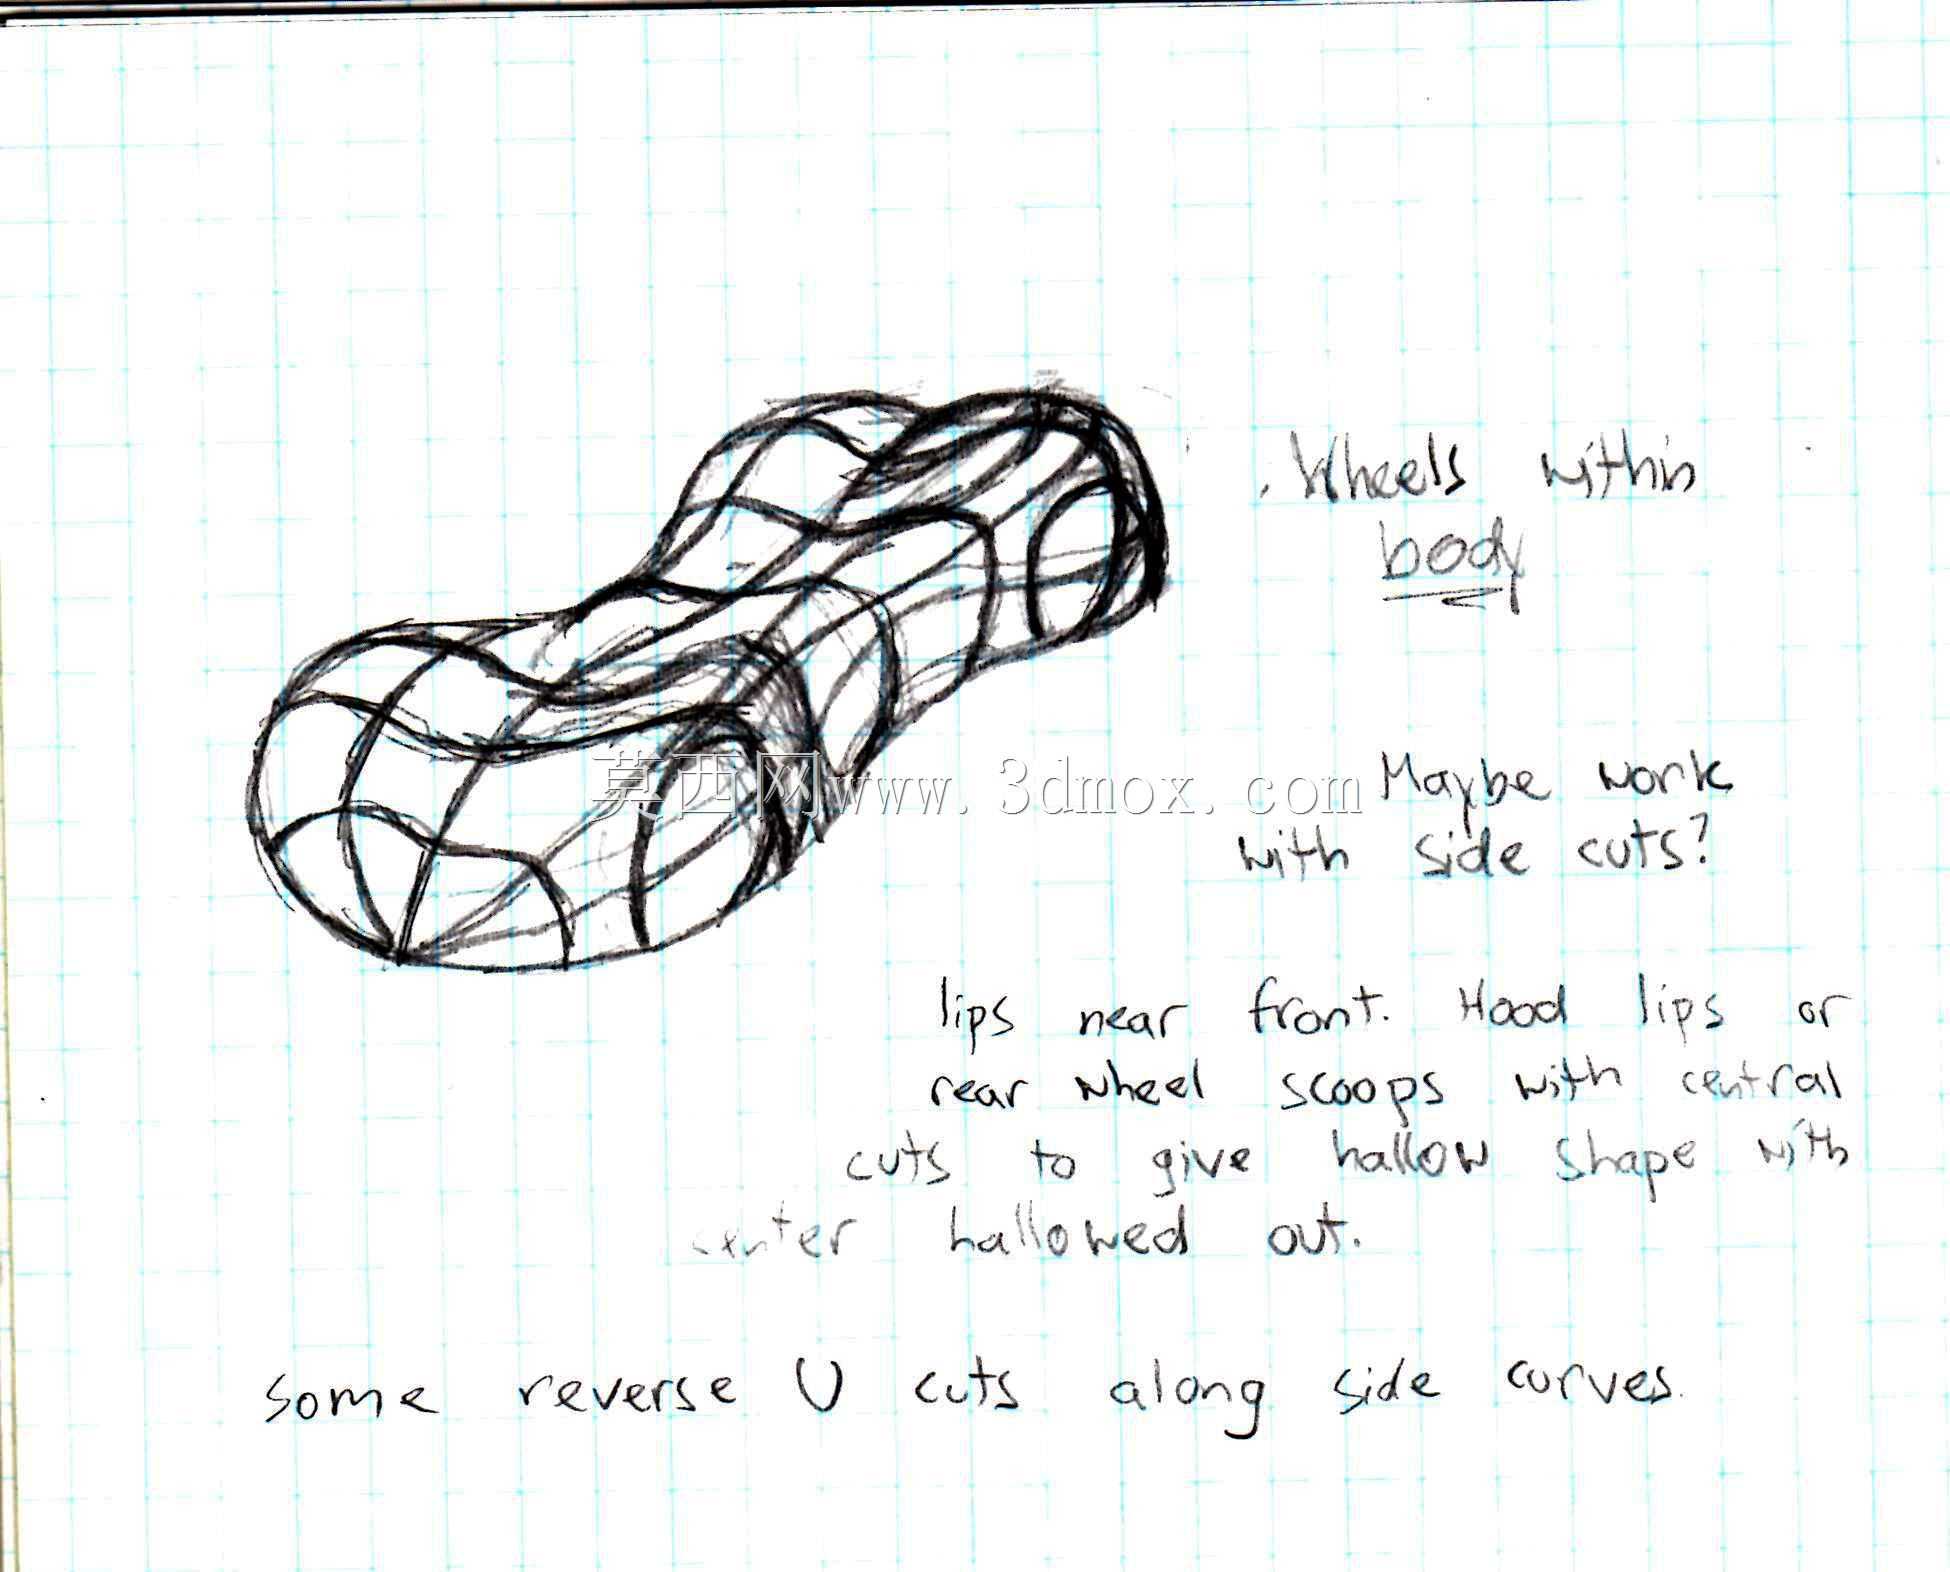 . Wheels within
body
莫西网www.3dmox.com
Maybe work
with side cuts?
lips near front. Hood lips or
rear wheel scoops with central
cuts to give hallow shape with
center hallowed out.
some reverse U cuts along side curves.